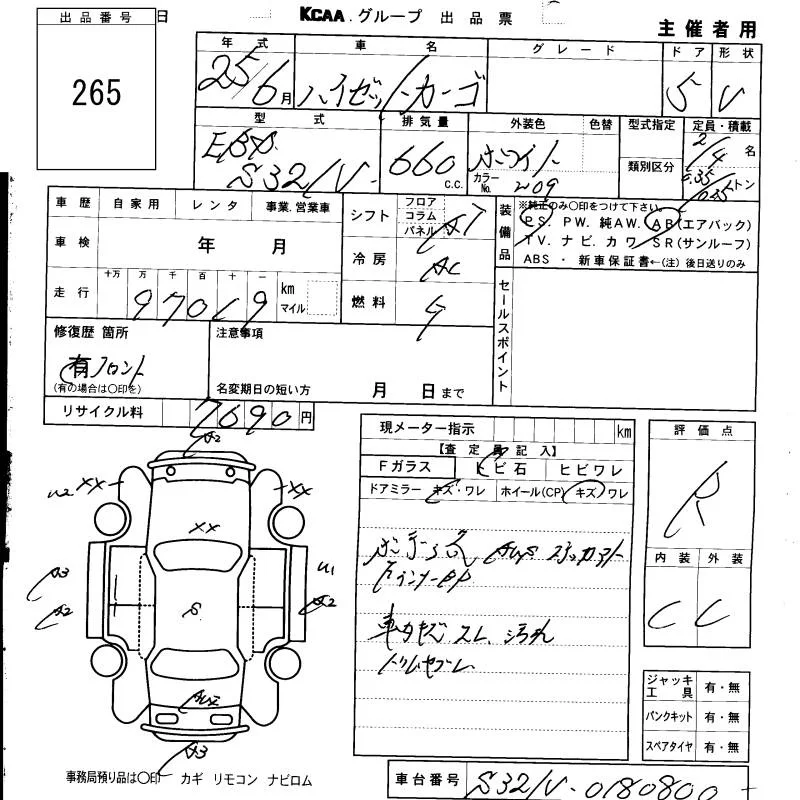 出品番号 日 KCAA.グループ 出品票
主催者用
265
年式 車名 グレード ドア 形状
25/6月 ハイゼットカーゴ 5 V
型式 排気量 外装色 色替 型式指定 定員・積載
EBD- S321V- 660 c.c. ホワイト 類別区分 2/4名
カラーNo. 209 0.35/0.25トン
車歴 自家用 レンタ 事業.営業車 シフト フロア コラム パネル AT 装備品 ※純正のみ〇印をつけて下さい。
P S. P W. 純A W. A B (エアバック)
車検 年 月 冷房 AC T V. ナビ. カワ. S R (サンルーフ)
ABS ・ 新車保証書←(注)後日送りのみ
走行 十万 万 千 百 十 一 km マイル 燃料 セールスポイント
97019
修復歴 箇所 注意事項
有 フロント
(有の場合は〇印を) 名変期日の短い方 月 日まで
リサイクル料 7690円
現メーター指示 km 評価点
【査定員記入】
Fガラス トビ石 ヒビワレ R
ドアミラー キズ・ワレ ホイール(CP) キズ/ワレ
内装 外装
C C
A2
W2 XX XX
XX
A3 A2 S U1 A2
A3
車内キズ スレ 汚れ
ジャッキ工具 有・無
パンクキット 有・無
スペアタイヤ 有・無
事務局預り品は〇印 カギ リモコン ナビロム
車台番号 S321V-0180800